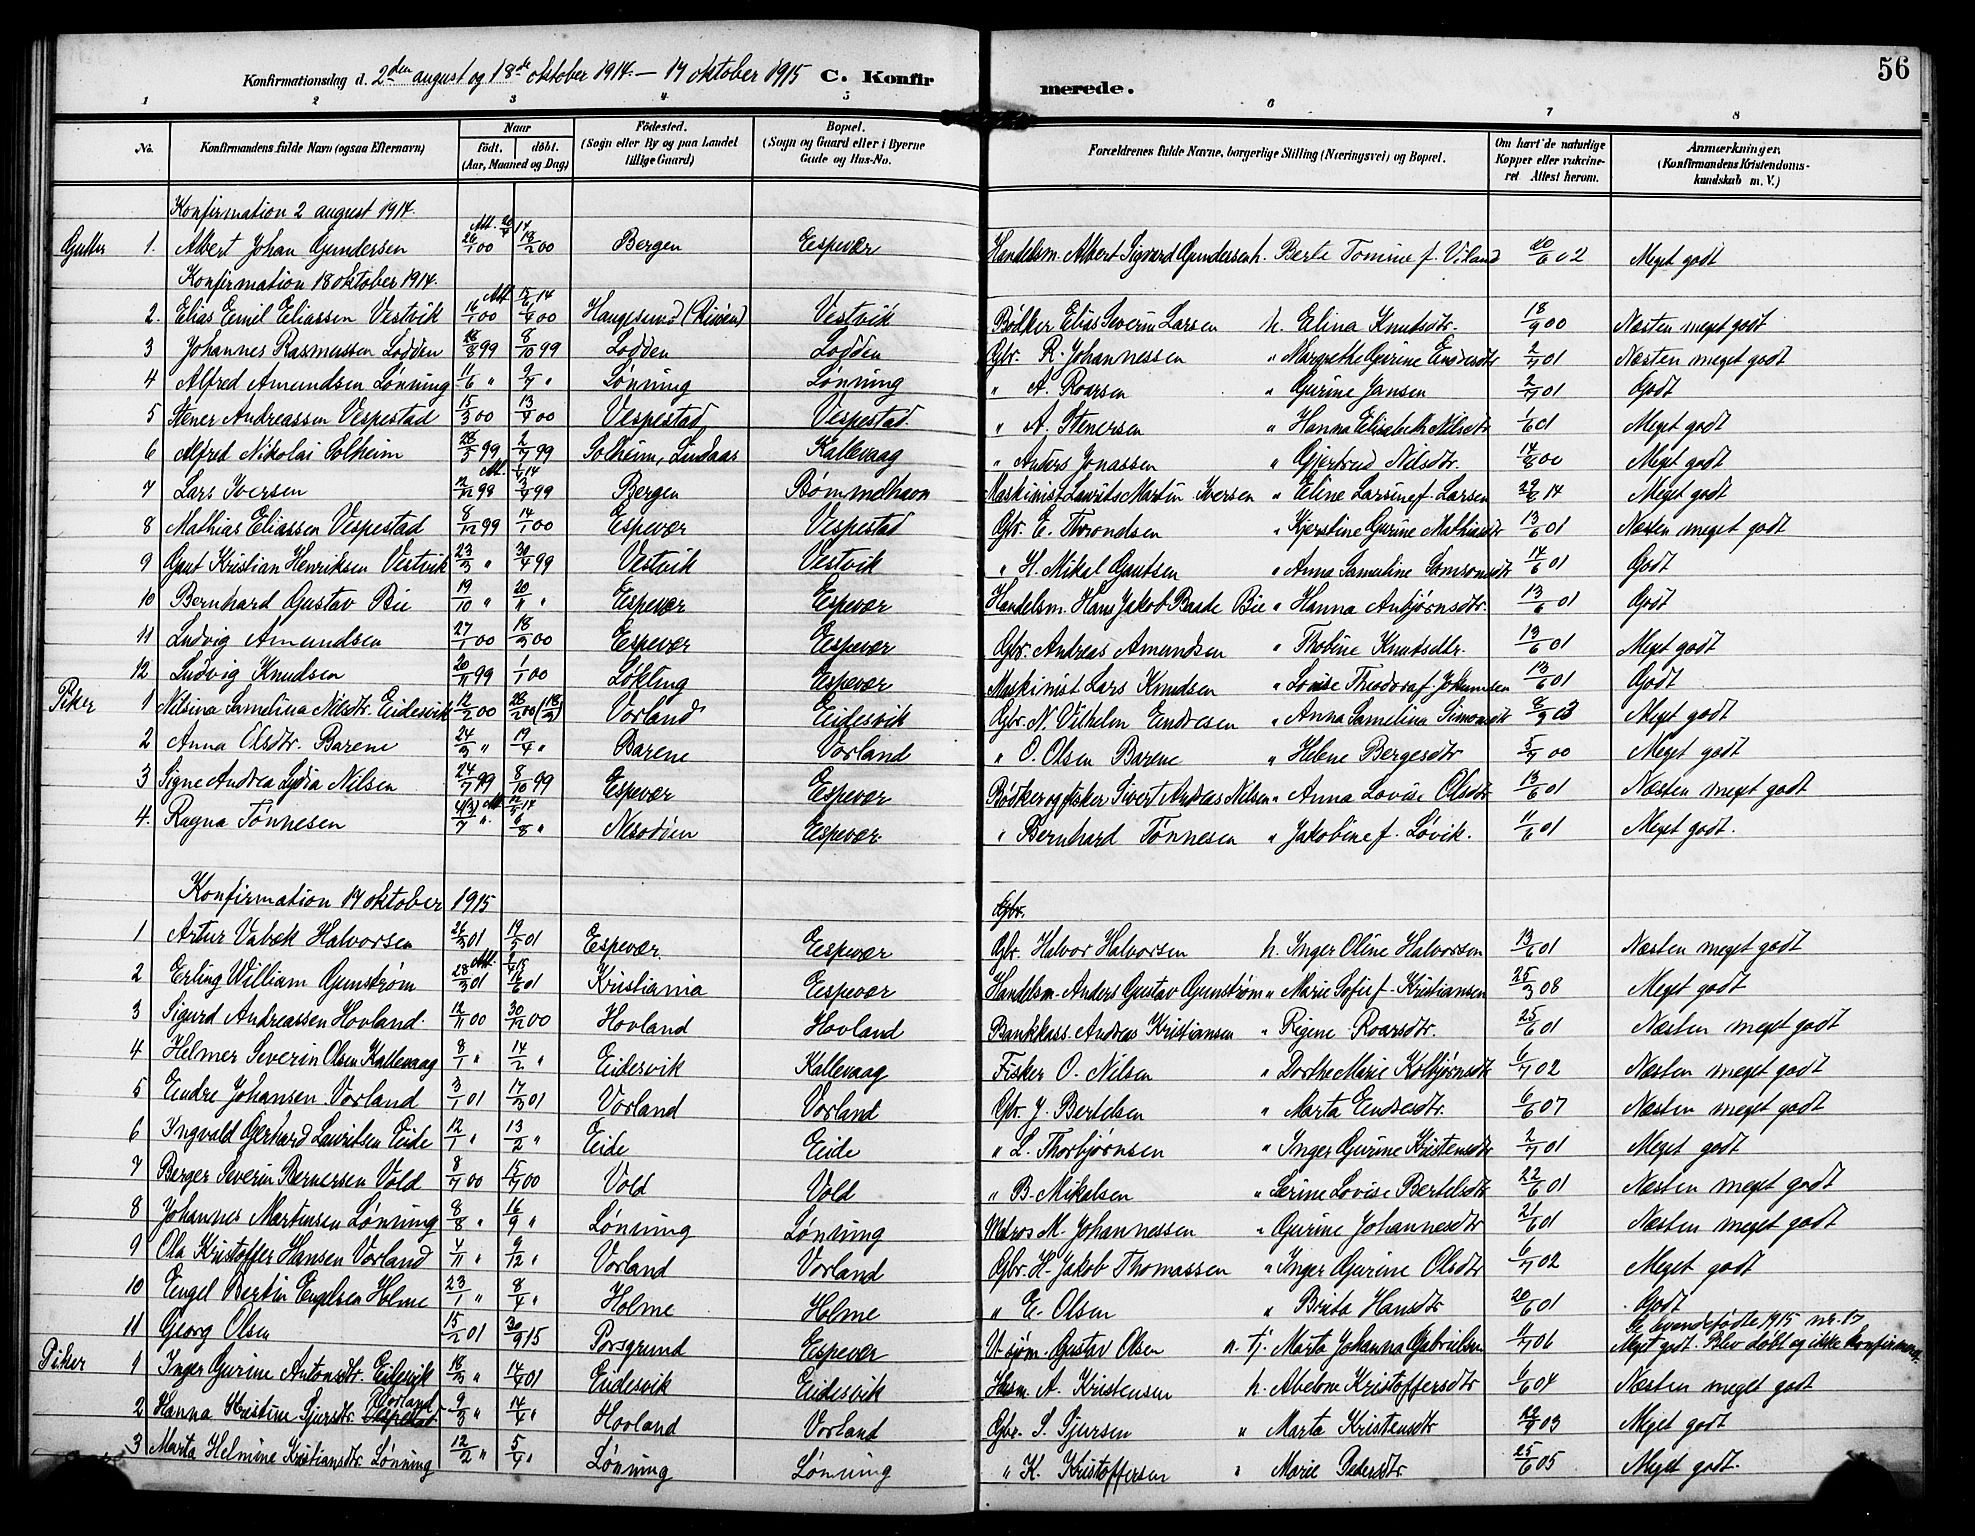 56
Konfirmationsdag d. 2den august og 18de oktober 1914. — 17 oktober 1915 C. Konfirmerede.
1 2 3 4 5 6 7 8
No. Konfirmandens fulde Navn (ogsaa Efternavn) Naar födt. döbt. (Aar, Maaned og Dag) Födested. (Sogn eller By og paa Landet tillige Gaard) Bopæl. (Sogn og Gaard eller i Byerne Gade og Hus-No. Forældrenes fulde Navne, borgerlige Stilling (Næringsvei) og Bopæl. Om havt de naturlige Kopper eller vakcineret Attest herom. Anmærkninger. (Konfirmandens Kristendomskundskab m. V.)
Konfirmation 2 august 1914.
Gutter 1. Albert Johan Gundersen 26/1 00 18/2 00 Bergen Espevær Handelsm. Albert Sigvard Gundersen h. Berte Tomine f. Viland 20/6 02 Meget godt
Konfirmation 18 oktober 1914.
2. Elias Emil Eliassen Vestvik 16/1 00 Att. 15/6 14 1/4 00 Haugesund Vestvik Bødker Elias Severin Larsen h. Elina Knutsdtr. 18/9 00 Næsten meget godt
3 Johannes Rasmussen Lodden 28/8 99 8/10 99 Lodden Lodden Gbr. R. Johannessen " Margrethe Gurine Endresdtr 2/7 01 Næsten meget godt
4 Alfred Amundsen Lønning 11/6 " 9/7 " Lønning Lønning " A. Roarsen " Gurine Jansen 2/7 01 Godt
5 Stener Andreassen Vespestad 15/3 00 13/4 00 Vespestad Vespestad " A. Stenersen " Hanna Elisabeth Nilsdtr 1/6 01 Meget godt
6 Alfred Nikolai Solheim 28/5 99 2/7 99 Solheim, Lindaas Kallevaag " Anders Jonassen " Gjertrud Nilsdtr. 14/8 00 Meget godt
7 Lars Iversen 12/12 98 3/4 99 Bergen Bømmelhavn Maskinist Laurits Martin Iversen " Eline Larsine f. Larsen 14 Meget godt
8 Mathias Eliassen Vespestad 8/12 99 14/1 00 Espevær Vespestad Gbr. E. Throndsen " Kjerstine Gurine Mathiasdtr 13/6 01 Næsten meget godt
9 Gaut Kristian Henriksen Vestvik 23/3 " 30/4 99 Vestvik Vestvik " H. Mikal Gautsen " Anna Samuline Samsonsdtr 14/6 01 Godt
10 Bernhard Gustav Bie 19/10 " 20/11 " Espevær Espevær Handelsm. Hans Jakob Baade Bie " Hanna Anbjørnsdtr. 13/6 01 Godt
11 Ludvig Amundsen 27/1 00 18/3 00 Espevær Espevær Gbr. Andreas Amundsen " Tholine Knutsdtr. 13/6 01 Meget godt
12 Ludvig Knudsen 20/11 99 1/1 00 Løkling Espevær Maskinist Lars Knudsen " Lovise Theodora f. Jokumsen 13/6 01 Godt
Piker 1 Nilsina Samelina Nilsdtr. Eidesvik 12/2 00 28/2 00 (18/3) Vorland Eidesvik Gbr. N. Vilhelm Endresen " Anna Samelina Simonsdtr 8/9 03 Meget godt
2 Anna Olsdtr. Barene 24/3 " 19/4 " Barene Vorland " O. Olsen Barene " Helene Bergesdtr 5/7 00 Meget godt
3 Signe Andrea Lydia Nilsen 24/7 99 8/10 99 Espevær Espevær Bødker og fisker Sivert Andreas Nilsen " Anna Lovise Olsdtr 13/6 01 Næsten meget godt
4. Ragna Tønnesen 6/8 " Nesodden Espevær. " Bernhard Tønnesen " Jakobine f. Løvik. 11/6 01 Meget godt.
Konfirmation 17 oktober 1915
Gbr.
1 Artur Vabæk Halvorsen 26/3 01 19/5 01 Espevær. Espevær Gbr. Halvor Halvorsen h. Inger Oline Halvorsen 13/6 01 Næsten meget godt
2 Erling William Gunstrøm 28/3 01 16/6 01 Kristiania Espevær Handelsm. Anders Gustav Gunstrøm " Marie Sofie f. Kristiansen 25/3 08 Meget godt
3 Sigurd Andreassen Hovland. 12/11 00 30/12 00 Hovland Hovland Bankkass. Andreas Kristiansen " Regine Roarsdtr. 25/6 01 Næsten meget godt
4 Helmer Severin Olsen Kallevaag 8/1 " 14/2 " Eidesvik Kallevaag Fisker O. Nilsen " Dorthe Marie Kolbjørnsdtr 6/7 02 Næsten meget godt
5 Endre Johansen Vorland 3/1 01 17/3 01 Vorland Vorland Gbr. J. Bertelsen " Marta Endresdtr. 6/6 07 Næsten meget godt
6 Ingvald Gerhard Lauritsen Eide 12/1 " 13/2 " Eide Eide " L. Thorbjørnsen " Inger Gurine Kristensdtr 2/7 01 Meget godt
7 Berger Severin Bernersen Vold 8/7 00 15/7 00 Vold Vold " B. Mikalsen " Serine Lovise Bertelsdtr 22/6 01 Næsten meget godt
8 Johannes Martinsen Lønning 8/8 " 16/9 " Lønning Lønning Matros M. Johannessen " Gurine Johannesdtr 21/6 01 Næsten meget godt
9 Ola Kristoffer Hansen Vorland 4/11 " 9/12 " Vorland Vorland Gbr. H. Jakob Thomassen " Inger Gurine Olsdtr 6/7 02 Meget godt
10 Engel Bertin Engelsen Holme 23/1 " 8/4 " Holme Holme " E. Olsen " Brita Hansdtr 20/6 01 Godt
11 Georg Olsen 15/2 01 30/9 15 Porsgrund Espevær Gustav Olsen Marta Johanna Gabrielsen 11/7 06 levendefødte 1915 nr. 17 Meget godt. Blev døbt og ikke konfirmeret.
Piker 1 Inger Gurine Antonsdtr. Eidesvik 18/3 " 14/4 01 Eidesvik Eidesvik Husm. A. Kristensen h. Abelone Kristoffersdtr 6/6 04 Næsten meget godt
2 Hanna Kristine Sjursdtr. Vorland 9/3 " 14/4 " Hovland Vorland Gbr. S. Sjursen " Marta Kristensdtr 03 Meget godt
3 Marta Helmine Kristiansdtr. Lønning 12/2 " 5/4 " Lønning Lønning " K. Kristoffersen " Marie Pedersdtr 25/6 05 Meget godt.